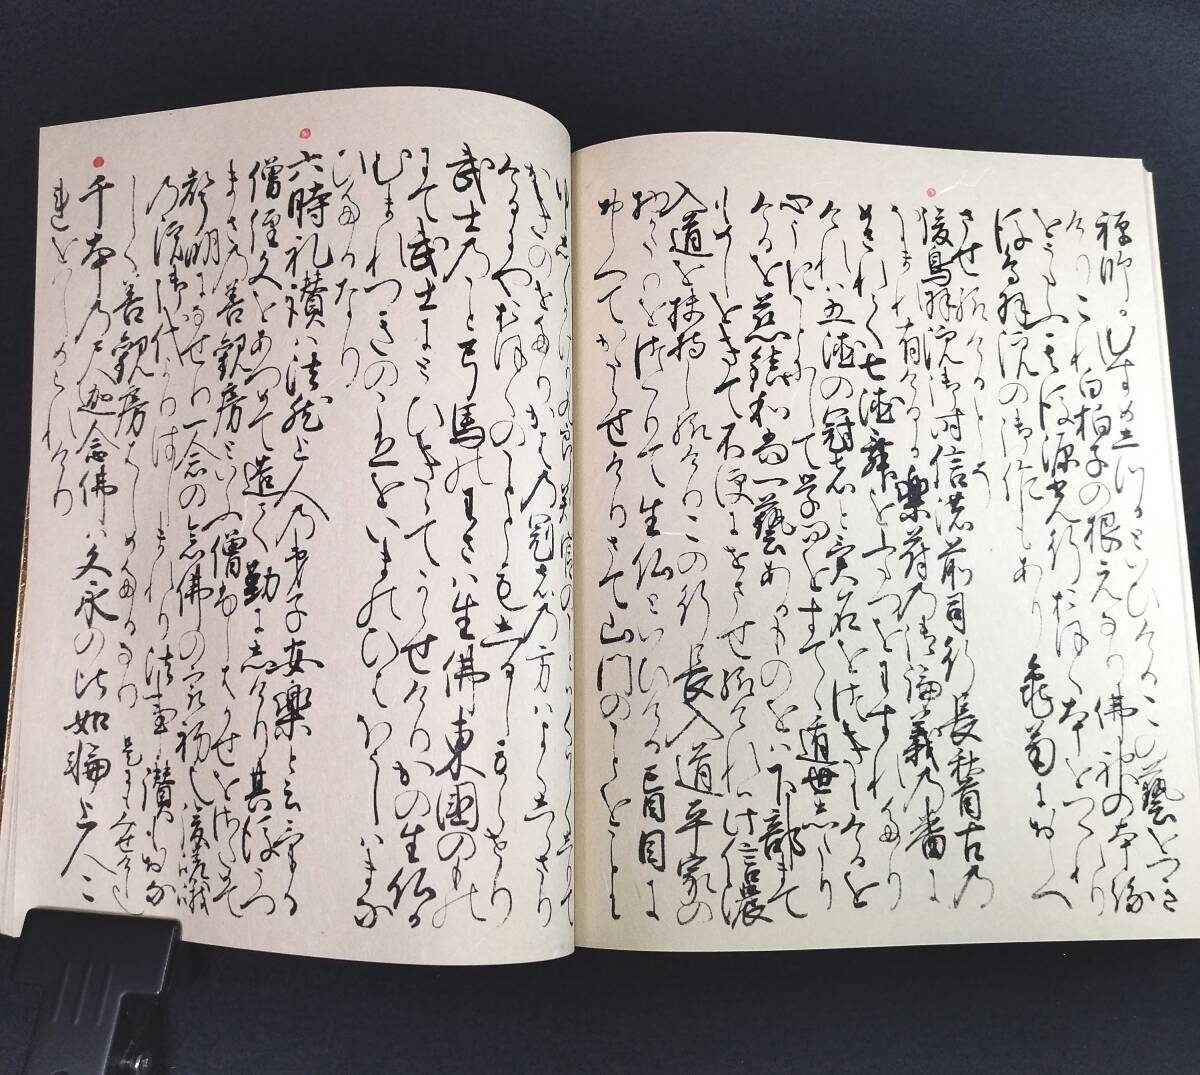 禅師かむすめしつかといひけるこの藝をつき
けりこれ白拍子の根元なり佛神の本縁
をうたふ其後源光行おほく本をつくれり
後鳥羽院の御作もあり 亀菊にをしへ
させ給けるとそ
後鳥羽院御時信濃前司行長稽古の
ほまれ有けるか樂府の御論義の番に
めされて七徳舞をふたつをわすれたり
けれは五徳の冠者と異名をつきにけるを
心うきことにして学問をすてゝ遁世したり
けるを慈鎮和尚一藝あるものをは下部まて
もめしをきて不便にせさせ給けれは此信濃
入道を扶持し給けりこの行長入道平家の
物かたりをつくりて生仏といひける盲目に
をしへてかたらせけりさて山門のことをことに
ゆゝしくかけり九郎判官のことはくはしくしりて
かきのせたりかはの冠者の方はよくしらさり
けるにやおほくのことゝもをしるしもらせり
武士のこと弓馬のわさは生佛東國のもの
にて武士にとひきゝてかゝせけりかの生仏か
むまれつきのこゑをいまのひはほうしはまな
ひたるなり
六時礼讃は法然上人の弟子安樂と云ける
僧經文をあつめて造て勤にしけり其後うつ
まさの善觀房といふ僧ふしはかせをさためて
聲明になせり一念の念佛の最初也後嵯峨
の院御代よりはしまれり法事讃も同
しく善觀房はしめたるなり
千本の尺迦念佛は文永の比如輪上人こ
れをはしめられけり